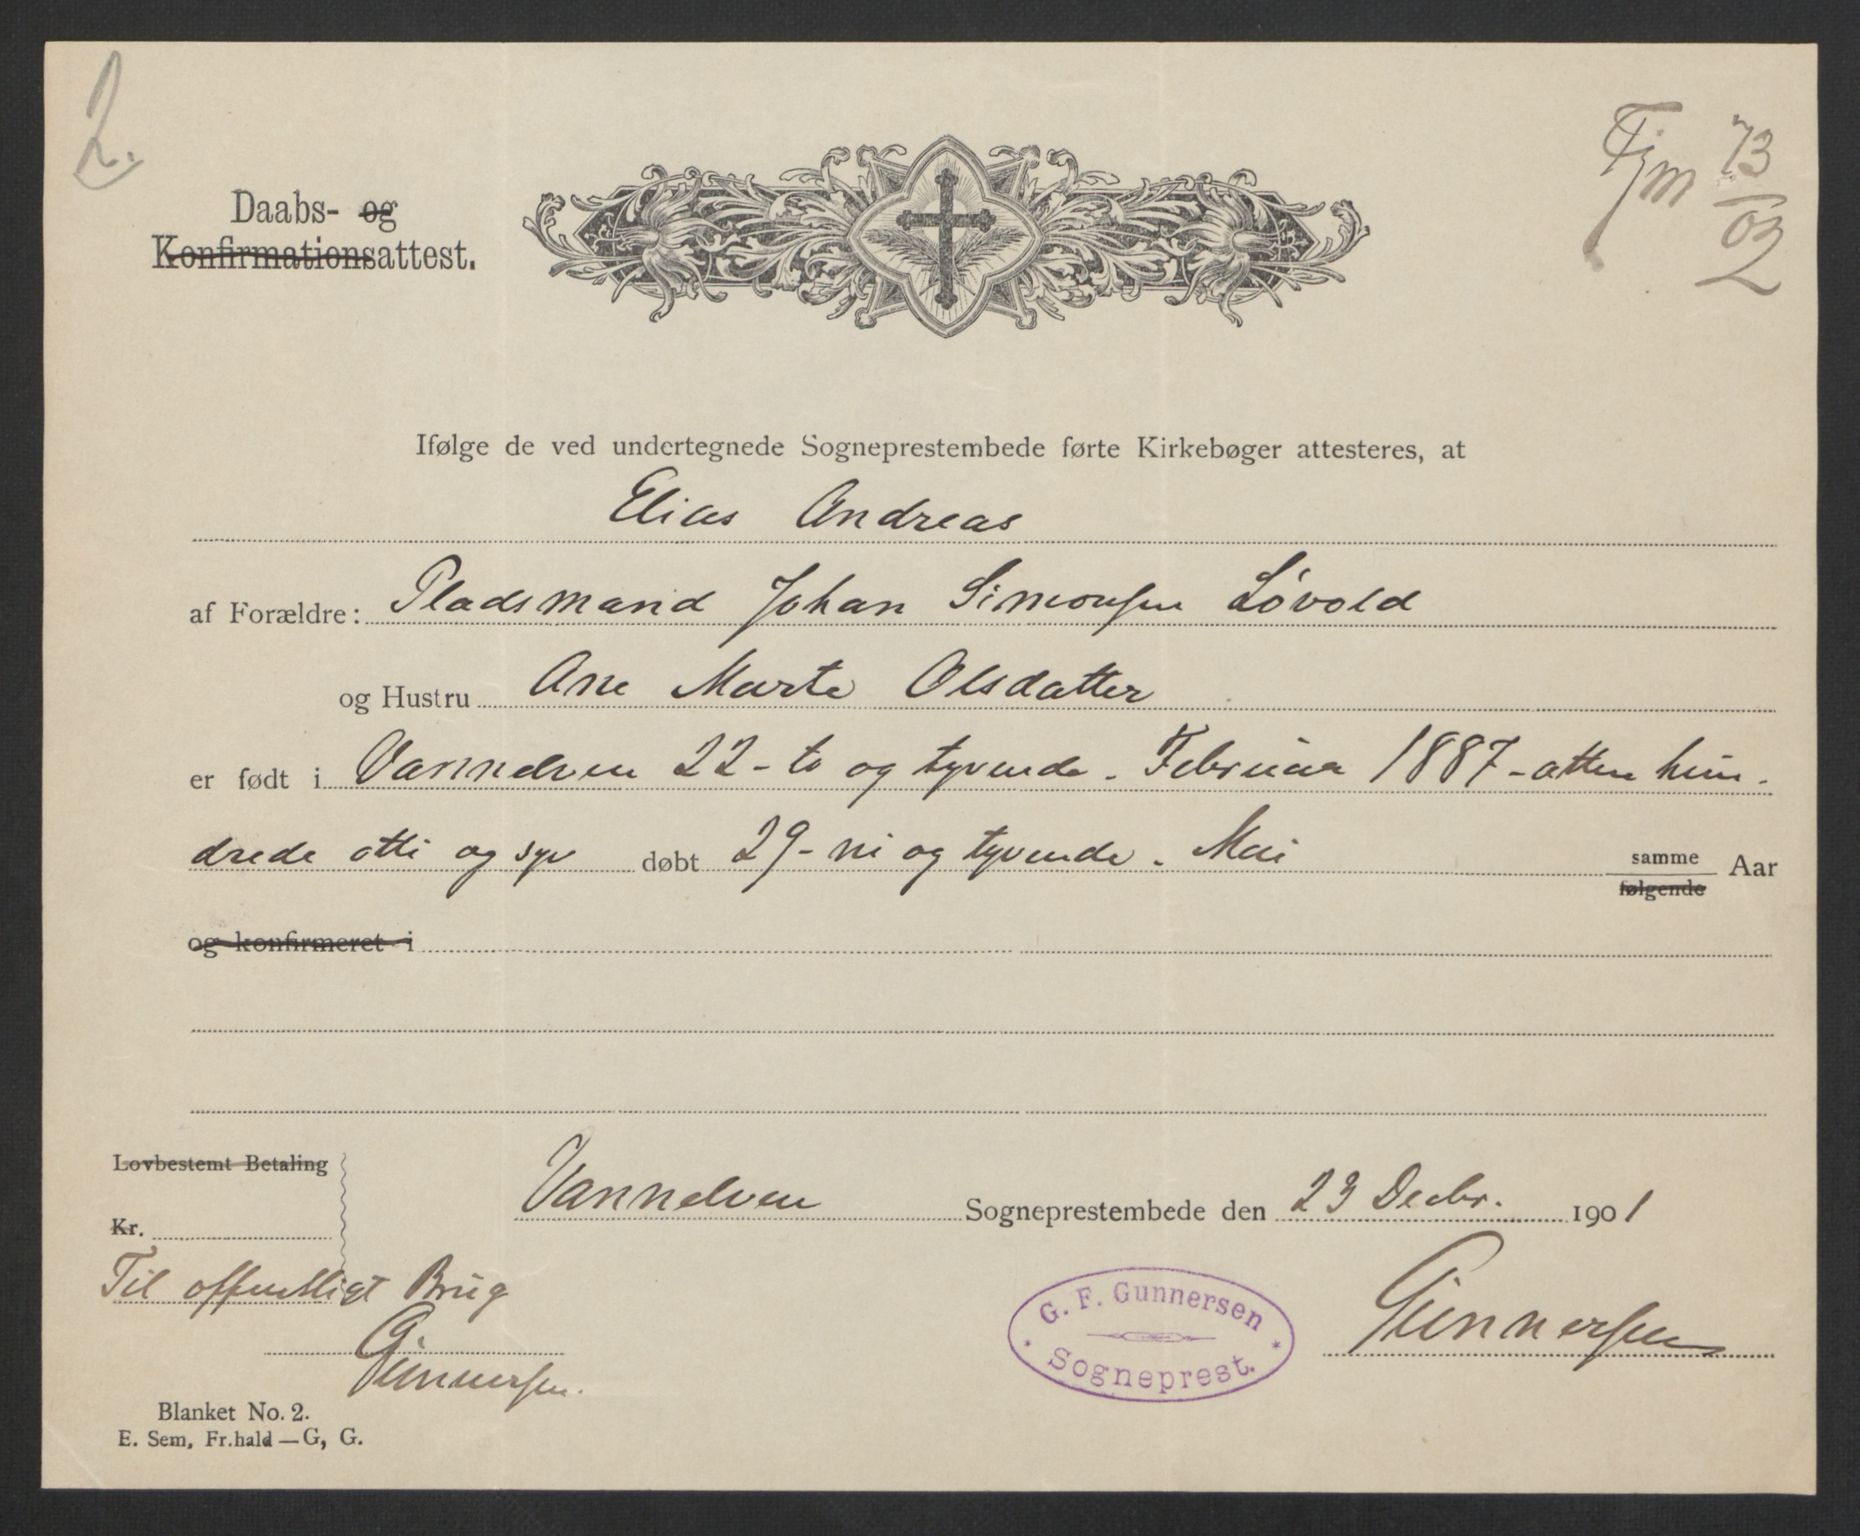 2.
Fjm 73
02
Daabs- og
Konfirmationsattest.
Ifølge de ved undertegnede Sogneprestembede førte Kirkebøger attesteres, at
Elias Andreas
af Forældre: Pladsmand Johan Simonsen Løvold
og Hustru Ane Marte Olsdatter
er født i Vannelven 22 - to og tyvende - Februar 1887 - atten hun-
drede otti og syv døbt 29 - ni og tyvende - Mai samme Aar
følgende
og konfirmeret i
Lovbestemt Betaling
Vannelven Sogneprestembede den 23 Decbr. 1901
Kr.
Til offentligt Brug
Gunnersen.
G. F. Gunnersen
Sogneprest.
Gunnersen
Blanket No. 2.
E. Sem, Fr.hald — G, G.